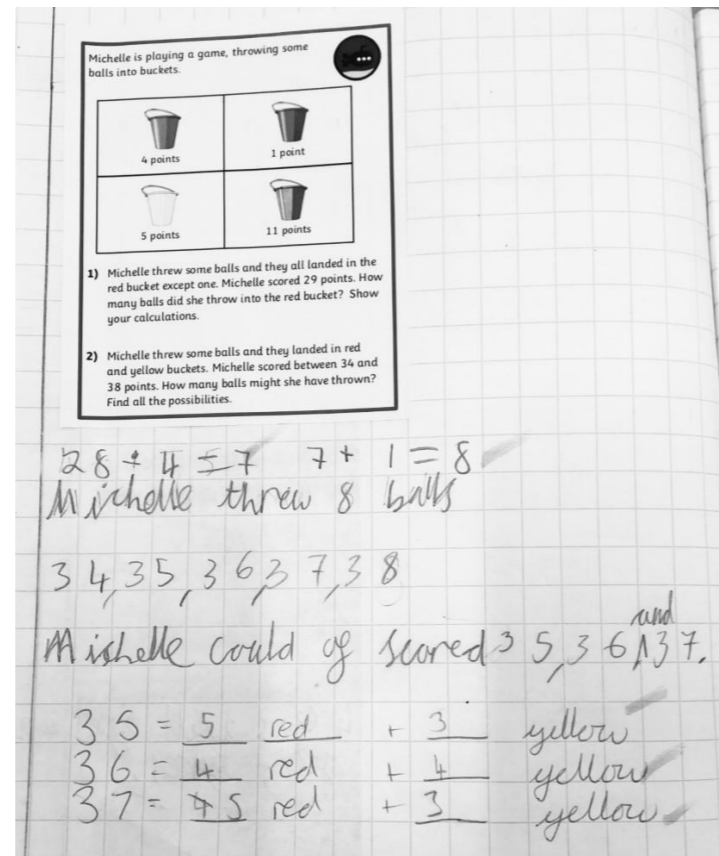 Michelle is playing a game, throwing some
balls into buckets.
4 points
1 point
5 points
11 points
1) Michelle threw some balls and they all landed in the
red bucket except one. Michelle scored 29 points. How
many balls did she throw into the red bucket? Show
your calculations.
2) Michelle threw some balls and they landed in red
and yellow buckets. Michelle scored between 34 and
38 points. How many balls might she have thrown?
Find all the possibilities.
28 ÷ 4 = 7 7 + 1 = 8
Michelle threw 8 balls
34, 35, 36, 37, 38
Mishelle could of scored 35, 36 and 37.
35 = 5 red + 3 yellow
36 = 4 red + 4 yellow
37 = 4 5 red + 3 yellow